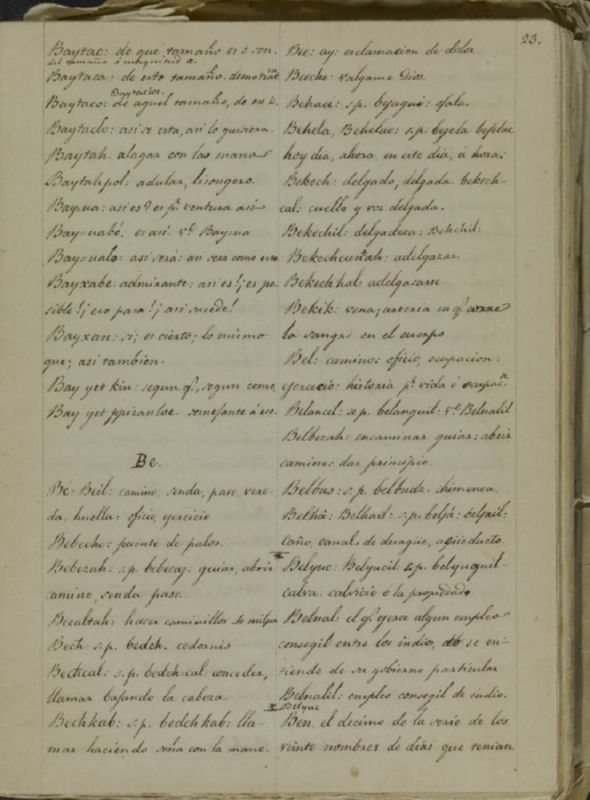 23.
Baytac: de que tamaño es ó son.
del tamaño ó antiguedad &.
Baytaca: de este tamaño. demostrat.vo
Baytacloe
Baytaco: de aquel tamaño, de ese &.
Baytaclo: asi se esta, asi lo quisiera.
Baytah: alagar con las manos
Baytahpol: adular, lisongero.
Bay=ua: asi es? es pr. ventura asi
Bay=uabé: es asi. ve. Bay=ua
Bay=ualo: asi será: asi sera como
Bayxabe admirante: asi es!; es po
sible!; eso pasa!; asi sucede!
Bayxan: si; es cierto; lo mismo
que; asi tambien.
Bay yet kin: segun qe., segun como,
Bay yet ppizanloe. semejante á eso.
Be.
Be: Beil: camino, senda, paso, vere-
da, huella: oficio, egercicio
Bebeche: puente de palos.
Bebezah: s.p. bebezaj: guiar, abrir
camino, senda paso.
Becaltah: hacer caminillos de milpa
Bech: s.p. bedch. codorniz
Bechcal: s.p. bedch-cal conceder,
llamar bajando la cabeza.
Bechkab: s.p. bedchkab: lla-
mar haciendo seña con la mano.
Bee: ay: esclamacion de dolor
Beeche: valgame Dios.
Behaci: s.p. bejagui: ojala.
Behela, Behelae: s.p. bejela bejelae
hoy dia, ahora, en este dia, ú hora:
Bekech: delgado, delgada. bekech-
cal: cuello y voz delgada.
Bekechil: delgadeza: Behchil:
Bekechcunah: adelgazar.
Bekechhal: adelgasarse
Bekik: vena, arteria en qe. corre
la sangre en el cuerpo
Bel: camino: oficio, ocupacion:
egercicio: historia pr. vida ó ocupon.
Belancil: s.p. belanquil: ve. Belnalil
Belbezah: encaminar guiar: abrir
camino: dar principio
Belbuɔ: s.p. belbuds. chimenea.
Belhá: Belhail: s.p. beljá: beljail:
caño, canal de desague, aqueducto
Belyuc: Belyucil s.p. belyuquil-
calva: calvicie ó la propiedad
Belnal: el qe. ejerce algun empleo
consegil entre los indios, se en-
tiende de su gobierno particular
Belnalil: empleo consegil de indio.
Belyuc
Ben el decimo de la serie de los
veinte nombres de dias que tenian